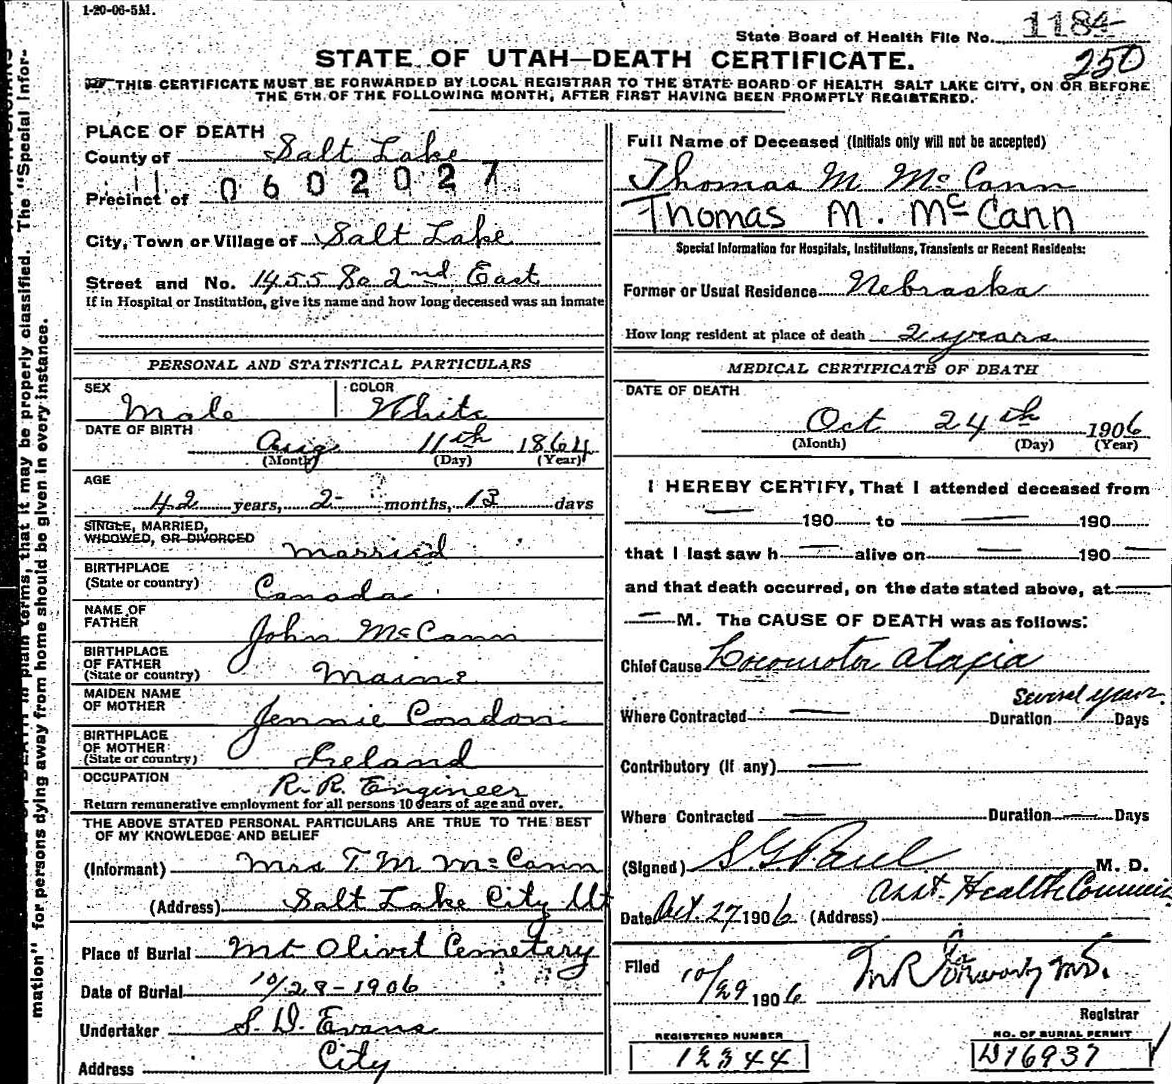 1-20-06-5M.
State Board of Health File No. 1184
250
STATE OF UTAH—DEATH CERTIFICATE.
THIS CERTIFICATE MUST BE FORWARDED BY LOCAL REGISTRAR TO THE STATE BOARD OF HEALTH SALT LAKE CITY, ON OR BEFORE
THE 5TH OF THE FOLLOWING MONTH, AFTER FIRST HAVING BEEN PROMPTLY REGISTERED.
PLACE OF DEATH
County of Salt Lake
0602027
Precinct of
City, Town or Village of Salt Lake
Street and No. 1455 So 2nd East
If in Hospital or Institution, give its name and how long deceased was an inmate
PERSONAL AND STATISTICAL PARTICULARS
SEX Male
COLOR White
DATE OF BIRTH
Aug 11th 1864
(Month) (Day) (Year)
AGE
42 years, 2 months, 13 days
SINGLE, MARRIED,
WIDOWED, OR DIVORCED Married
BIRTHPLACE
(State or country) Canada
NAME OF
FATHER John McCann
BIRTHPLACE
OF FATHER
(State or country) Maine
MAIDEN NAME
OF MOTHER Jennie Condon
BIRTHPLACE
OF MOTHER
(State or country) Ireland
OCCUPATION R.R. Engineer
Return remunerative employment for all persons 10 years of age and over.
THE ABOVE STATED PERSONAL PARTICULARS ARE TRUE TO THE BEST
OF MY KNOWLEDGE AND BELIEF
(Informant) Mrs T. M. McCann
(Address) Salt Lake City Ut
Place of Burial Mt Olivet Cemetery
Date of Burial 10/28-1906
Undertaker S. D. Evans
Address City
Full Name of Deceased (Initials only will not be accepted)
Thomas M McCann
Thomas M. McCann
Special Information for Hospitals, Institutions, Transients or Recent Residents:
Former or Usual Residence Nebraska
How long resident at place of death 2 years
MEDICAL CERTIFICATE OF DEATH
DATE OF DEATH
Oct 24th 1906
(Month) (Day) (Year)
I HEREBY CERTIFY, That I attended deceased from
— 190 to — 190
that I last saw h — alive on — 190 —
and that death occurred, on the date stated above, at
— M. The CAUSE OF DEATH was as follows:
Chief Cause Locomotor ataxia
Several years.
Where Contracted — Duration Days
Contributory (if any) —
Where Contracted — Duration — Days
(Signed) S. G. Paul M. D.
Asst. Health Commis
Date Oct. 27 1906 (Address)
Filed 10/29 1906 M.D.
Registrar
REGISTERED NUMBER
12344
NO. OF BURIAL PERMIT
D16937
mation" for persons dying away from home should be given in every instance.
DEATH in plain terms, that it may be properly classified. The "Special Infor-